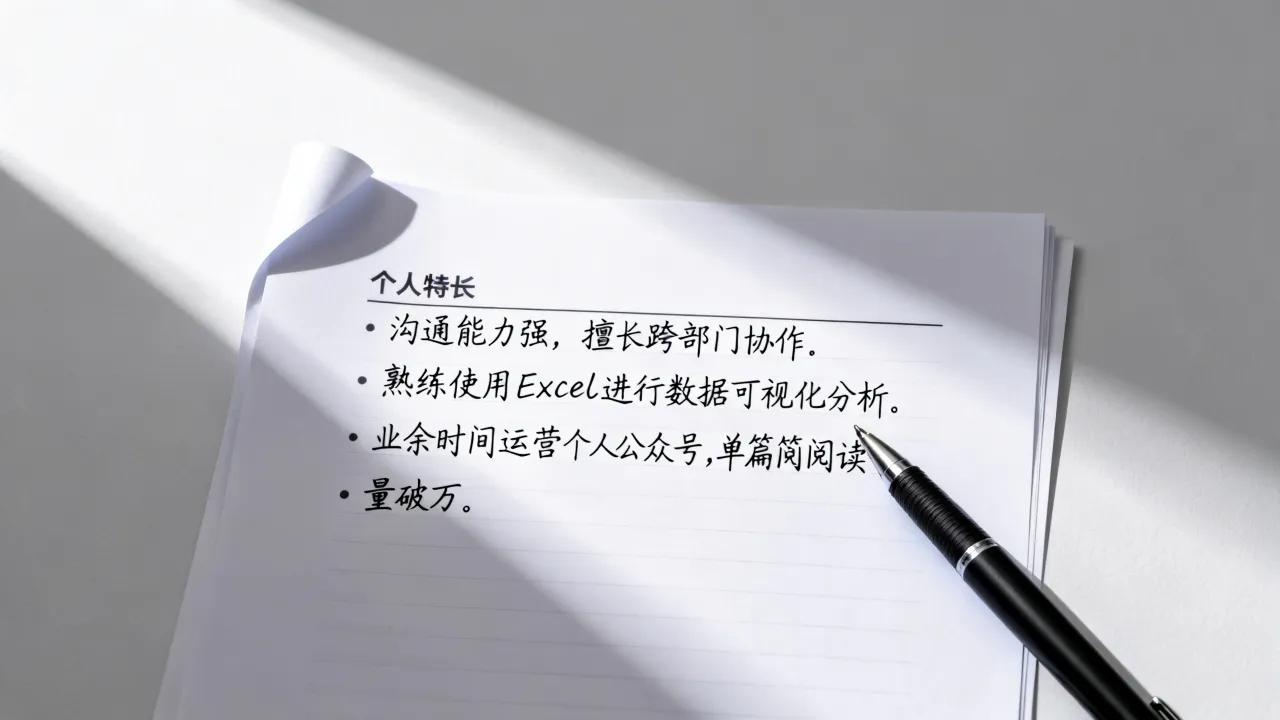 个人特长
• 沟通能力强，擅长跨部门协作。
• 熟练使用Excel进行数据可视化分析。
• 业余时间运营个人公众号，单篇简阅读
• 量破万。